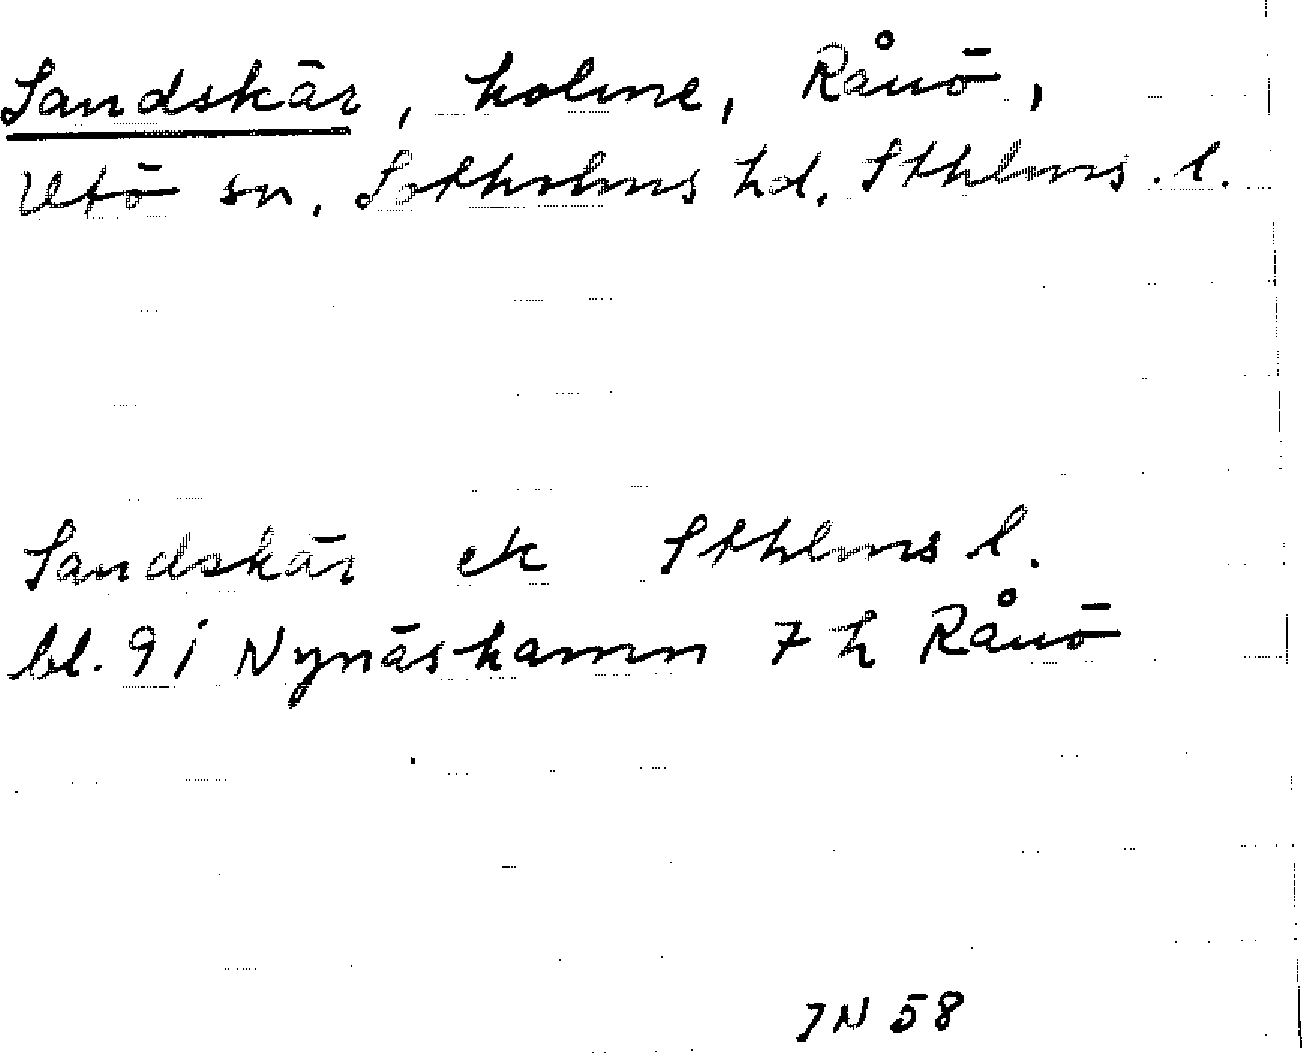 Sandskär, holme, Rånö,
Utö sn, Sotholms hd, Sthlms. l.
Sandskär ek Sthlms l.
bl. 91 Nynäshamn 7 h Rånö
JN 58